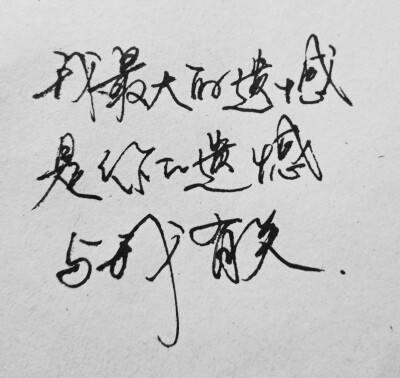 我最大的遗憾
是你的遗憾
与我有关.